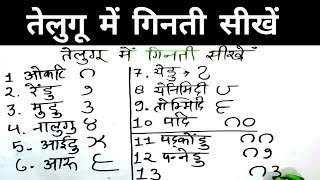 तेलुगू में गिनती सीखें
तेलुगू में गिनती सीखें
1 ओकटि ౧
2. रेंडु
3. मुडु
4. नालुगु ౪
5. आईदु
6. आरु
7. येडु
8 येनिमिदी ౮
9. तोम्मिदि
10 पदि ౧౦
11 पद्कोंडु ౧౧
12 पन्नेडु
13